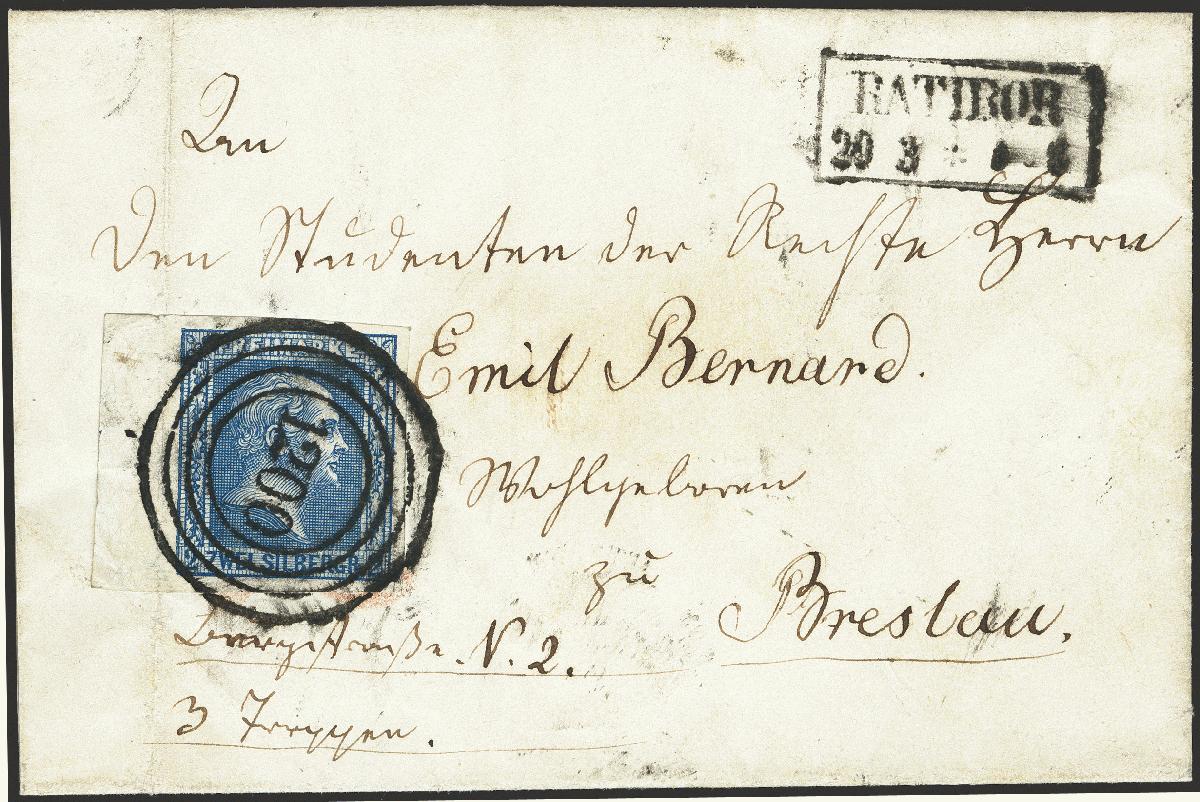 RATIBOR
20 3 *
An
Den Studenten der Rechte Herrn
Emil Bernard.
FREIMARKE
1200
ZWEI SILBERGR
Wohlgeboren
zu
Breslau.
N. 2.
3 Treppen.